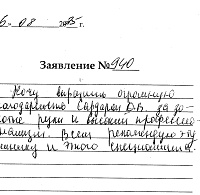 08
г.
Заявление № 940
Хочу выразить огромную
благодарность Сардарян О.В. за зо-
лотые руки и высокий професcио-
нализм. Всем рекомендую эту
клинику и этого специалиста.